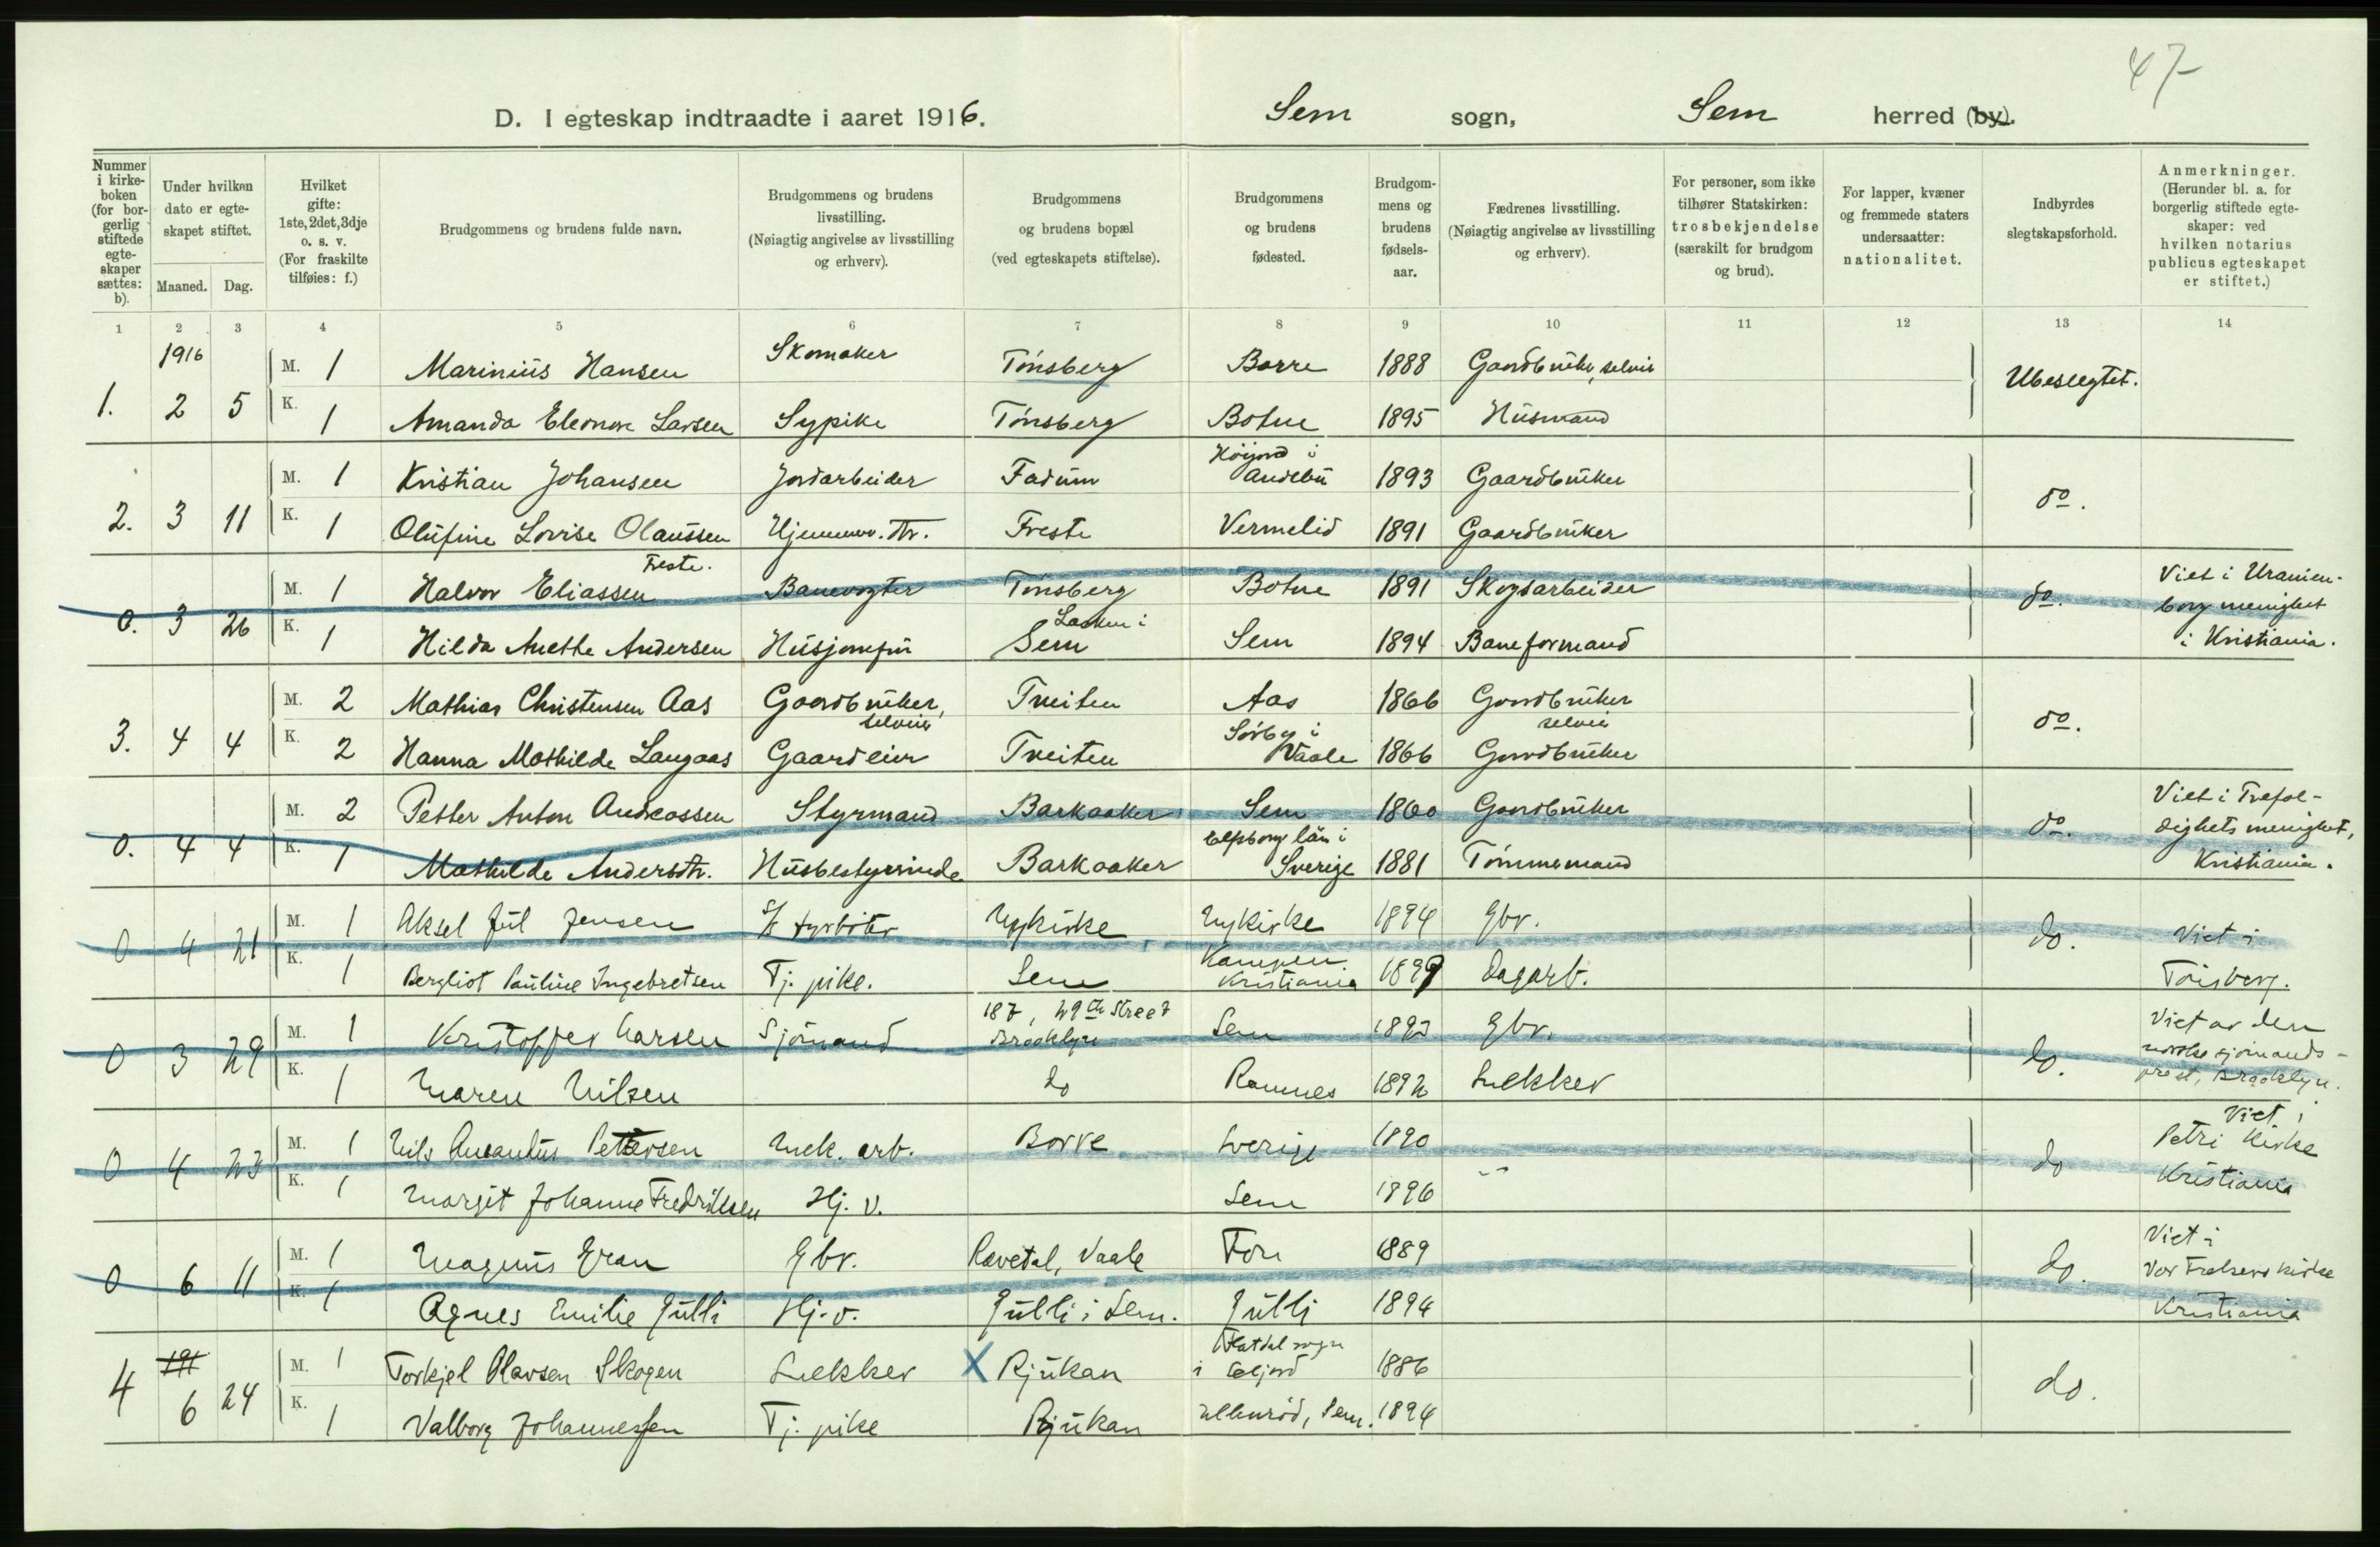 47
D. I egteskap indtraadte i aaret 1916. Sem sogn, Sem herred (by).
Nummer i kirkeboken (for borgerlig stiftede egteskaper sættes: b).
Under hvilken dato er egteskapet stiftet.
Maaned. Dag.
Hvilket gifte: 1ste, 2det, 3dje o. s. v. (For fraskilte tilføies: f.)
Brudgommens og brudens fulde navn.
Brudgommens og brudens livsstilling. (Nøiagtig angivelse av livsstilling og erhverv).
Brudgommens og brudens bopæl (ved egteskapets stiftelse).
Brudgommens og brudens fødested.
Brudgommens og brudens fødselsaar.
Fædrenes livsstilling. (Nøiagtig angivelse av livsstilling og erhverv).
For personer, som ikke tilhører Statskirken: trosbekjendelse (særskilt for brudgom og brud).
For lapper, kvæner og fremmede staters undersaatter: nationalitet.
Indbyrdes slegtskapsforhold.
Anmerkninger. (Herunder bl. a. for borgerlig stiftede egteskaper: ved hvilken notarius publicus egteskapet er stiftet.)
1 2 3 4 5 6 7 8 9 10 11 12 13 14
1916
M. 1 Marinius Hansen Skomaker Tönsberg Borre 1888 Gaardbruker, selveier Ubeslegtet.
1. 2 5 K. 1 Amanda Eleonore Larsen Sypike Tönsberg Botne 1895 Husmand
M. 1 Kristian Johansen Jordarbeider Fadum Höijord i Andebu 1893 Gaardbruker do.
2. 3 11 K. 1 Olufine Lovise Olaussen Freste. Hjemmev. dtr. Freste Vermelid 1891 Gaardbruker
M. 1 Halvor Eliassen Banevogter Tönsberg Botne 1891 Skogsarbeider do. Viet i Uranienborg menighet i Kristiania.
0. 3 26 K. 1 Hilda Anette Andersen Husjomfru Sem 1894 Baneformand
Sem
M. 2 Mathias Christensen Aas Gaardbruker, selveier Tveiten Aas 1866 Gaardbruker selveier do.
3. 4 4 K. 2 Hanna Mathilde Langaas Gaardeier Tveiten Sörby i Vaale 1866 Gaardbruker
M. 2 Petter Anton Andreassen Styrmand Barkaaker Sem 1860 Gaardbruker do. Viet i Trefoldighets menighet, Kristiania.
0. 4 4 K. 1 Mathilde Andersdtr. Husbestyrerinde Barkaaker Elfsborg län i Sverige 1881 Tömmermand
M. 1 Aksel Jul Jensen Nykirke Nykirke 1894 Gbr. do. Viet i Tönsberg.
0 4 21 K. 1 Bergliot Pauline Ingebretsen Tj. pike. Sem Kampen Kristiania 1899 Dagarb.
M. 1 Kristoffer Larsen Sjömand 187, 49th Street Brooklyn Sem Gbr. do. Viet av den norske sjömandsprest, Brooklyn.
0 3 29 K. 1 Maren Nilsen do Ramnes 1892 Snekker
M. 1 Nils Amandus Pettersen Mek. arb. Borre Sverige 1890 do Viet i Petri Kirke Kristiania
0 4 23 K. 1 Margit Johanne Fredriksen Hj. v. Sem 1896
M. 1 Magnus Gran Gbr. Revetal, Vaale Fon 1889 do. Viet i Vor Frelsers kirke Kristiania
0 6 11 K. 1 Agnes Emilie Gulli Hj. v. Gulli i Sem. Gulli 1894
191
M. 1 Torkjel Olavsen Skogen Snekker X Rjukan Flatdal sogn i Seljord 1886 do.
4 6 24 K. 1 Valborg Johannessen Tj. pike Rjukan Ullenröd, Sem. 1894